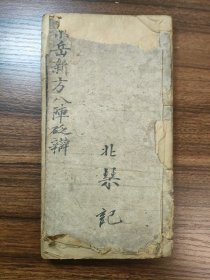 岳新方八陣砭辨
北
記